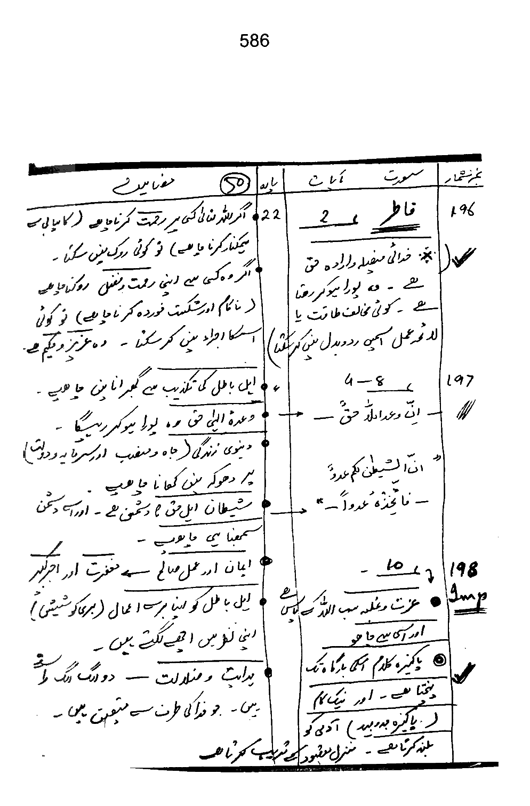 586
نمبر شمار سورت آیات پارہ 50 مضامین
196 فاطر 2 22 اگر اللہ تعالیٰ کسی پر رحمت کرنا چاہے (کامیابی سے
ہمکنار کرنا چاہے) تو کوئی روک نہیں سکتا۔
خدائی فیصلہ و ارادہ حق
ہے۔ وہ پورا ہو کر رہتا
ہے۔ کوئی مخالف طاقت یا
لائحہ عمل اسمیں ردوبدل نہیں کر سکتا)
اگر وہ کسی سے اپنی رحمت و فضل روکنا چاہے
(ناکام اور شکست خوردہ کرنا چاہے) تو کوئی
اسکا اجراء نہیں کر سکتا۔ وہ عزیز و حکیم ہے۔
197 4-8 اہل باطل کی تکذیب سے گھبرانا نہیں چاہیے۔
إنّ وعد اللہ حقٌ — وعدۂ الٰہی حق وہ پورا ہو کر رہیگا۔
دنیوی زندگی (جاہ و منصب اور سرمایہ و دولت)
پر دھوکہ نہیں کھانا چاہیے۔
"انّ الشیطٰن لکم عدوٌ
فاتخذوہ عدواً —"
شیطان اہل حق کا دشمن ہے۔ اور اسے دشمن
سمجھنا ہی چاہیے۔
ایمان اور عمل صالح سے مغفرت اور اجر کبیر
198 10
Imp
عزت و غلبہ سب اللہ کے پاس ہے
اور اسی سے چاہو
پاکیزہ کلام اسکی بارگاہ تک
پہنچتا ہے۔ اور نیک کام
(پاکیزہ جدوجہد) آدمی کو
بلند کرتا ہے۔ منزل مقصود سے قریب کرتا ہے
اہل باطل کو اپنا برے اعمال (بری کوششیں)
اپنی نظر میں اچھے لگتے ہیں۔
ہدایت و ضلالت — دو الگ الگ راستے
ہیں۔ جو خدا کی طرف سے متعین ہیں۔